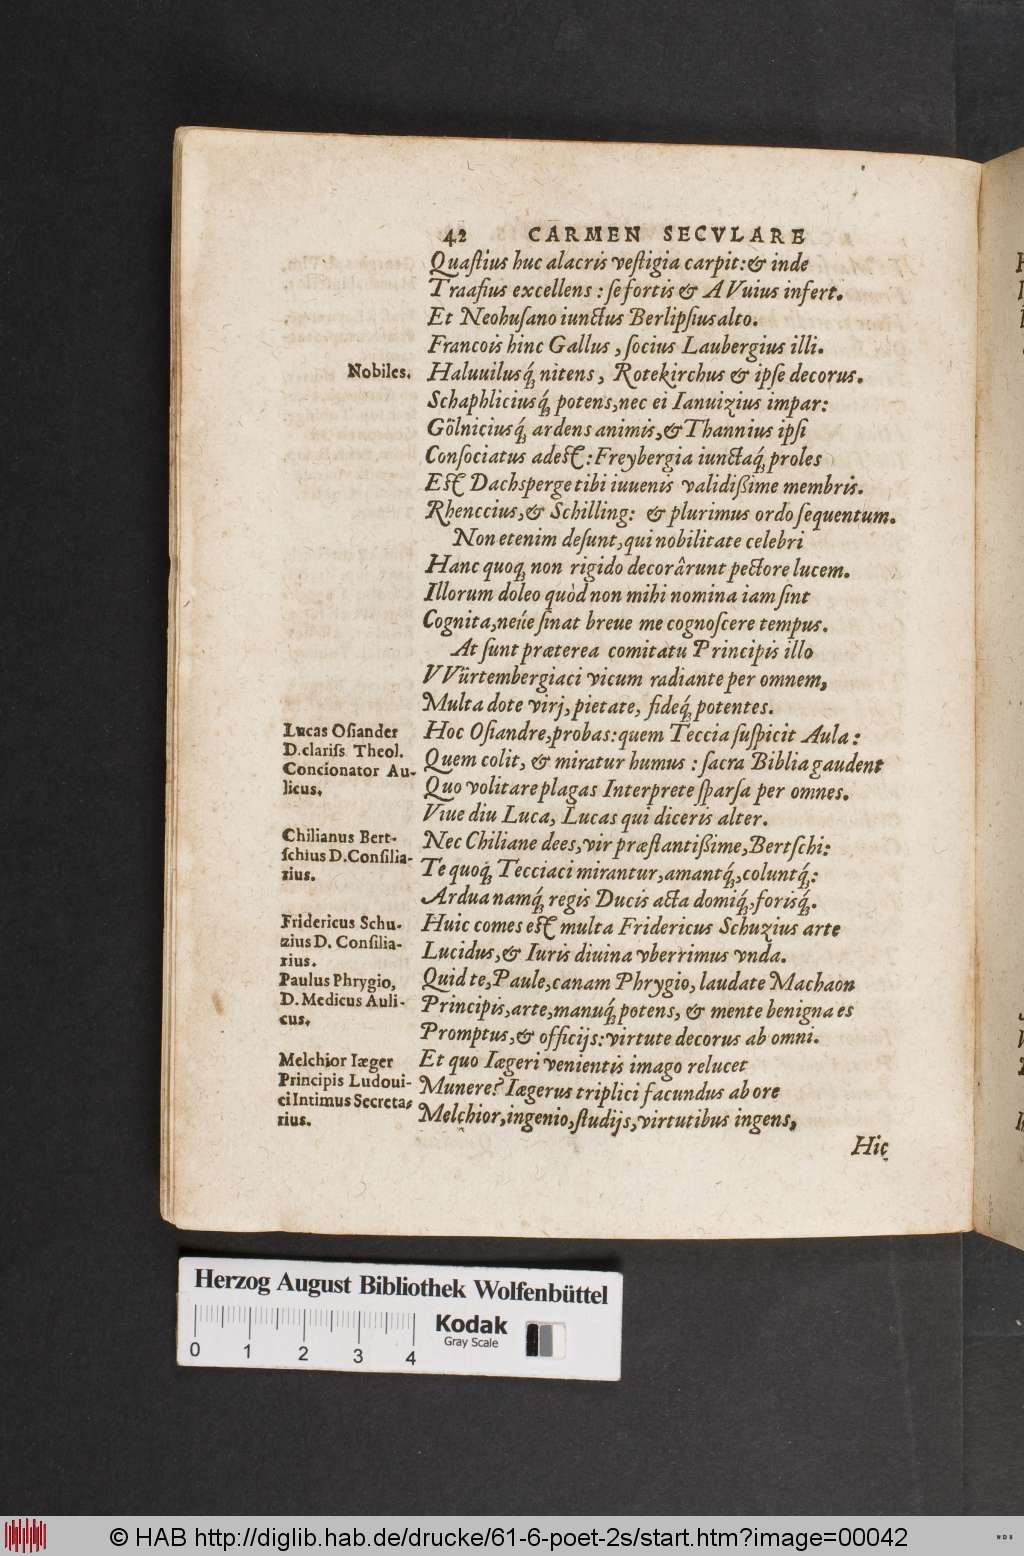 42 CARMEN SECVLARE
Quaſtius huc alacris veſtigia carpit: & inde
Traaſius excellens : ſe fortis & A Vuius infert.
Et Neohuſano iunctus Berlipſius alto.
Francois hinc Gallus , ſocius Laubergius illi.
Nobiles.
Haluuiluſq́; nitens , Rotekirchus & ipſe decorus.
Schaphliciuſq́; potens, nec ei Ianuizius impar:
Gölniciuſq́; ardens animis, & Thannius ipſi
Conſociatus adest : Freybergia iunctaq́; proles
Est Dachsperge tibi iuuenis validißime membris.
Rhenccius, & Schilling: & plurimus ordo ſequentum.
Non etenim deſunt, qui nobilitate celebri
Hanc quoq; non rigido decorârunt pectore lucem.
Illorum doleo quòd non mihi nomina iam ſint
Cognita, neúe ſinat breue me cognoſcere tempus.
At ſunt præterea comitatu Principis illo
VVürtembergiaci vicum radiante per omnem,
Multa dote virj, pietate, fideq́; potentes.
Lucas Oſiander
D. clariſs. Theol.
Concionator Au-
licus.
Hoc Oſiandre, probas: quem Teccia ſuſpicit Aula :
Quem colit, & miratur humus : ſacra Biblia gaudent
Quo volitare plagas Interprete ſparſa per omnes.
Viue diu Luca, Lucas qui diceris alter.
Chilianus Bert-
ſchius D. Conſilia-
rius.
Nec Chiliane dees, vir præſtantißime, Bertſchi:
Te quoq́; Tecciaci mirantur, amantq́;, coluntq́;:
Ardua namq́; regis Ducis acta domiq́;, foriſq́;.
Fridericus Schu-
zius D. Conſilia-
rius.
Huic comes est multa Fridericus Schuzius arte
Lucidus, & Iuris diuina vberrimus vnda.
Paulus Phrygio,
D. Medicus Auli-
cus.
Quid te, Paule, canam Phrygio, laudate Machaon
Principis, arte, manuq́; potens, & mente benigna es
Promptus, & officijs: virtute decorus ab omni.
Melchior Iæger
Principis Ludoui-
ci Intimus Secreta-
rius.
Et quo Iægeri venientis imago relucet
Munere? Iægerus triplici facundus ab ore
Melchior, ingenio, ſtudijs, virtutibus ingens,
Hic
Herzog August Bibliothek Wolfenbüttel
0 1 2 3 4
Kodak
Gray Scale
© HAB http://diglib.hab.de/drucke/61-6-poet-2s/start.htm?image=00042